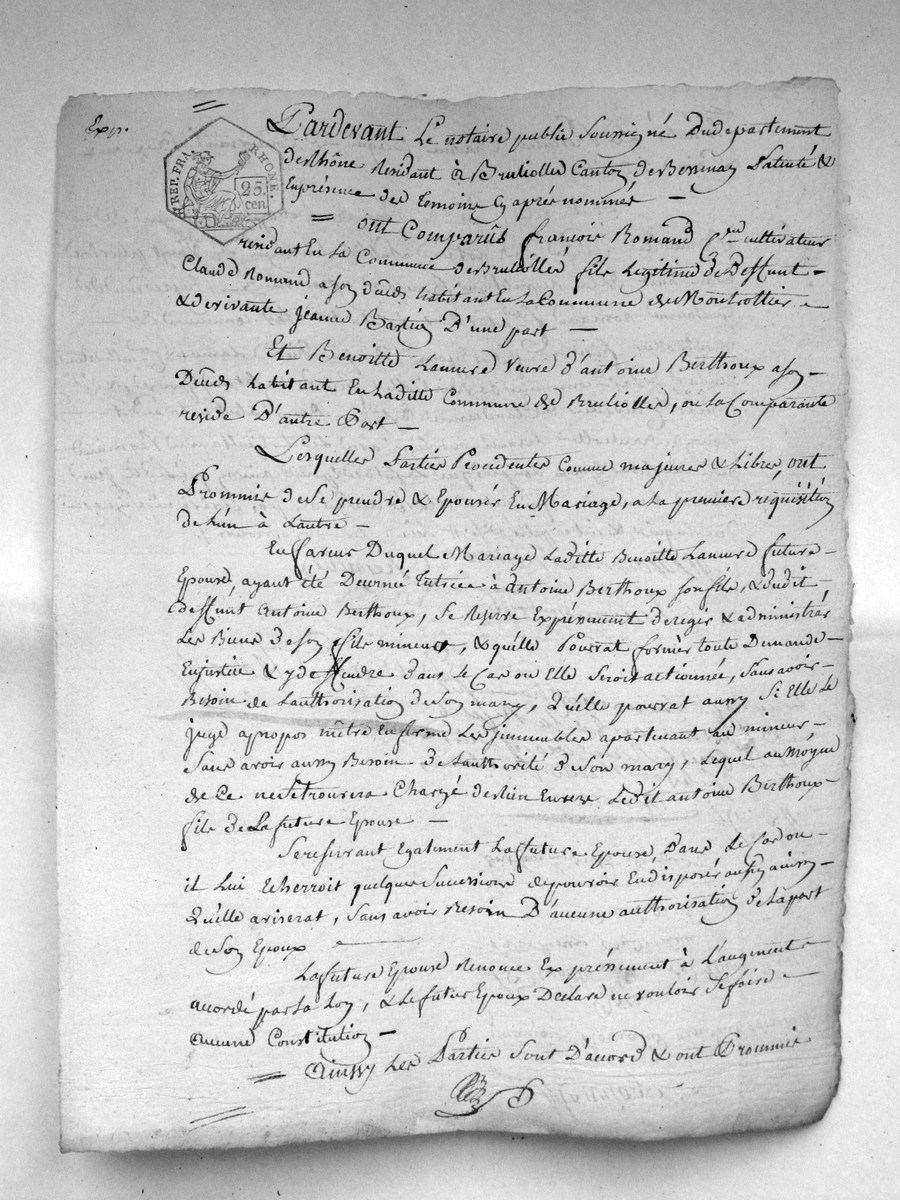 Exp.
REP. FRA. RHÔNE.
25.
cen
Pardevant Le notaire public Soussigné Dudepartement
deRhône Residant à Brulliolle Canton deBessenay Patenté &
Enprésence des Temoins Cy après nommés —
ont Comparûs françois Romand cultivateur
résidant En La Commune deBrulliolle, fils Legitime de Deffunt —
Claude Romand a son déceds habitant En La Commune de Montrottier
& de vivante jeanne Bastion D'une part —
Et Benoitte Laurere veuve d'antoine Berthoux a son —
Déceds habitant En Laditte Commune de Brulliolle, ou La Comparante
reside D'autre Part —
Lesquelles Parties Procedentes Comme majeures & Libres, ont
Prommis de Se prendre & Epousér En Mariage, a La premiere réquisition
de L'un à Lautre —
En faveur Duquel Mariage Laditte Benoitte Laurere future —
Epouse, ayant été Decernée Tutrice à antoine Berthoux son fils, & dudit
deffunt Antoine Berthoux, Se reserve Expressement de regir & administrér
Les Biens de Son fils mineur, & qu'élle Pourrat formér toute Demande
En justice & y deffendre dans Le Cas ou Elle Seroit actionnée, Sans avoir —
Besoin de Lauthorisation de Son mary, Qu'elle pourrat aussy Si Elle Le
juge apropos mêttre En ferme Les jmmeubles apartenant au mineur —
Sans avoir aussy Besoin de Lauthorité de Son mary, Lequel au Moyen
de Ce ne Se trouvera Chargé de Rien Envers Ledit antoine Berthoux
fils de La future Epouse —
Se reservant Egalement La future Epouse, Dans Le Cas ou —
il Lui Echerroit quelques Successions de pouvoir En disposér ainsy
Qu'elle aviserat, Sans avoir Besoin D'aucune authorisation de La part
de Son Epoux —
La future Epouse Renonce Expréssement à L'augment —
acordé par La Loy, & Le futur Epoux Declare ne vouloir Se faire —
aucune Constitution —
Ainssy Les Parties Sont D'acord & ont Prommis